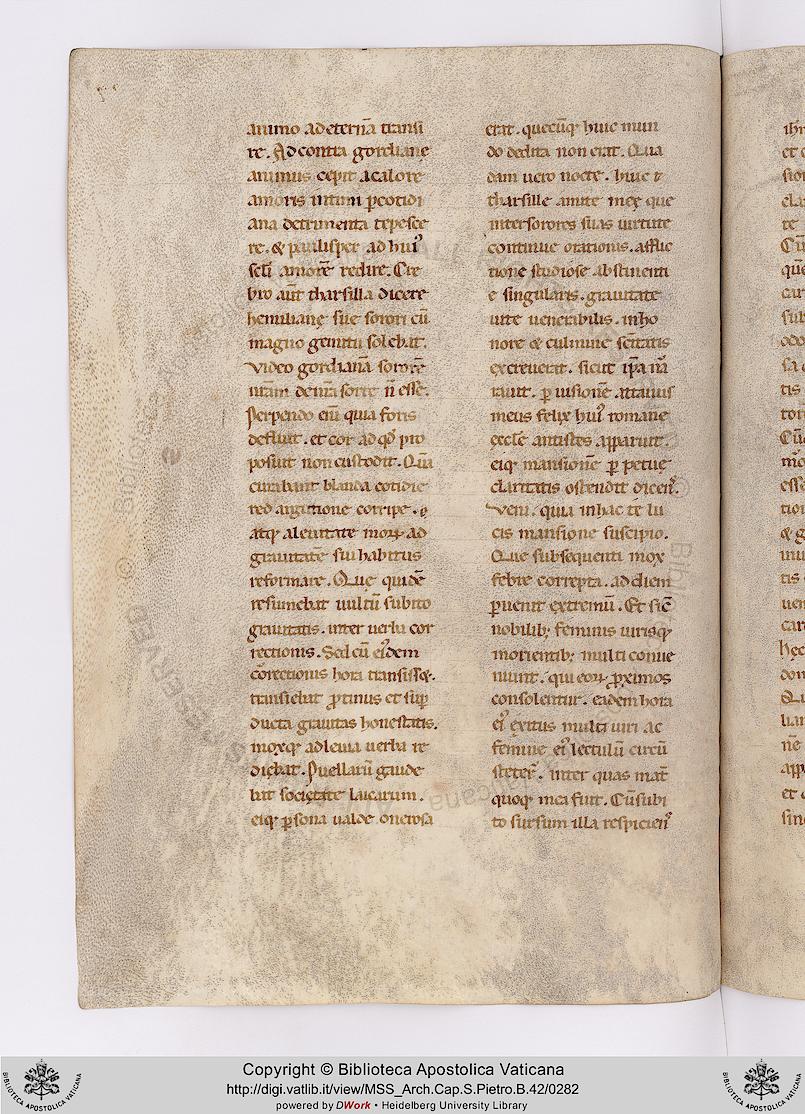 animo ad eternā transi
re. Ad contra gordianę
animus cepit a calore
amoris intimi ꝑ cotidi
ana detrimenta tepesce
re. & paulisper ad huiꝰ
sc̄li amorē redire. Cre
bro aūt tharsilla dicere
hemilianę sue sorori cū
magno gemitu solebat.
Video gordianā sororē
nr̄am de nr̄a sorte n̄ esse.
Perpendo eni̅ quia foris
defluit. et cor ad qđ pro
posuit non custodit. Quā
curabant blanda cotidie
redargutione corripe. &
atqꝫ a leuitate moꝝ ad
grauitatē sui habitus
reformare. Que quidē
resumebat uultū subito
grauitatis. inter uerba cor
rectionis. Sed cū eiꝰdem
cōrectionis hora transisset.
transiebat ꝓtinus et suꝑ
ducta grauitas honestatis.
moxqꝫ ad leuia uerba re
diebat. Puellarū gaude
bat societate laicarum.
eiqꝫ ꝑsona ualde onerosa
erat. quecūqꝫ huic mun
do dedita non erat. Qua
dam uero nocte. huic
tharsille amite meę que
inter sorores suas uirtute
continue orationis. afflic
tione studiose abstinenti
e singularis. grauitate
uite uenerabilis. in ho
nore & culmine sc̄itatis
excreuerat. sicut ip̄a nar
rauit. ꝑ uisionē. attauus
meus felix huiꝰ romane
ęccłe antistes apparuit.
eiqꝫ mansionē ꝑpetuę
claritatis ostendit dicenꝰ.
Veni. quia in hac te lu
cis mansione suscipio.
Que subsequenti mox
febre correpta. ad diem
ꝑuenit extremū. Et sic̄
nobilibꝫ feminis uirisqꝫ
morientibꝫ multi conue
niunt. qui eoꝝ ꝓximos
consolentur. eadem hora
eiꝰ exitus multi uiri ac
femine eiꝰ lectulū circū
steteꝝ. inter quas mat̄
quoqꝫ mea fuit. Cū subi
to sursum illa respicienꝰ
Copyright © Biblioteca Apostolica Vaticana
http://digi.vatlib.it/view/MSS_Arch.Cap.S.Pietro.B.42/0282
powered by DWork • Heidelberg University Library